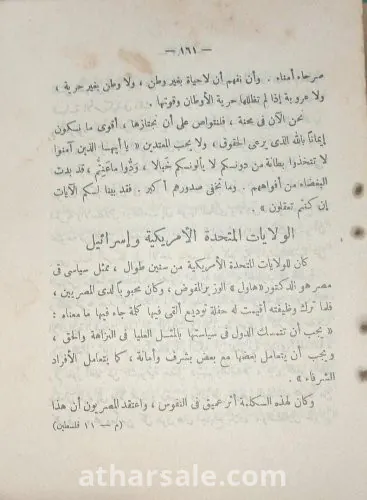 — ١٦١ —
صرحاء أمناء . وأن نفهم أن لا حياة بغير وطن ، ولا وطن بغير حرية ،
ولا عروبة إذا لم تظللها حرية الأوطان وقوتها .
نحن الآن فى محنة ، فلنتواص على أن نجتازها ، أقوى ما نكون
إيمانا بالله الذى يرعى الحقوق ، ولا يحب المعتدين « يا أيها الذين آمنوا
لا تتخذوا بطانة من دونكم لا يألونكم خبالا ، ودّوا ماعنتّم ، قد بدت
البغضاء من أفواههم . وما تخفى صدورهم أكبر . قد بينا لكم الآيات
إن كنتم تعقلون » .
الولايات المتحدة الأمريكية وإسرائيل
كان للولايات المتحدة الأمريكية من سنين طوال ، ممثل سياسى فى
مصر هو الدكتور « هاول » الوزير المفوض ، وكان محبوباً لدى المصريين ،
فلما ترك وظيفته أقيمت له حفلة توديع ألقى فيها كلمة جاء فيها ما معناه :
« يجب أن تتمسك الدول فى سياستها بالمثل العليا فى النزاهة والحق ،
ويجب أن يتعامل بعضها مع بعض بشرف وأمانة ، كما يتعامل الأفراد
الشرفاء » .
وكان لهذه الكلمة أثر عميق فى النفوس ، واعتقد المصريون أن هذا
(م — ١١ فلسطين)
atharsale.com